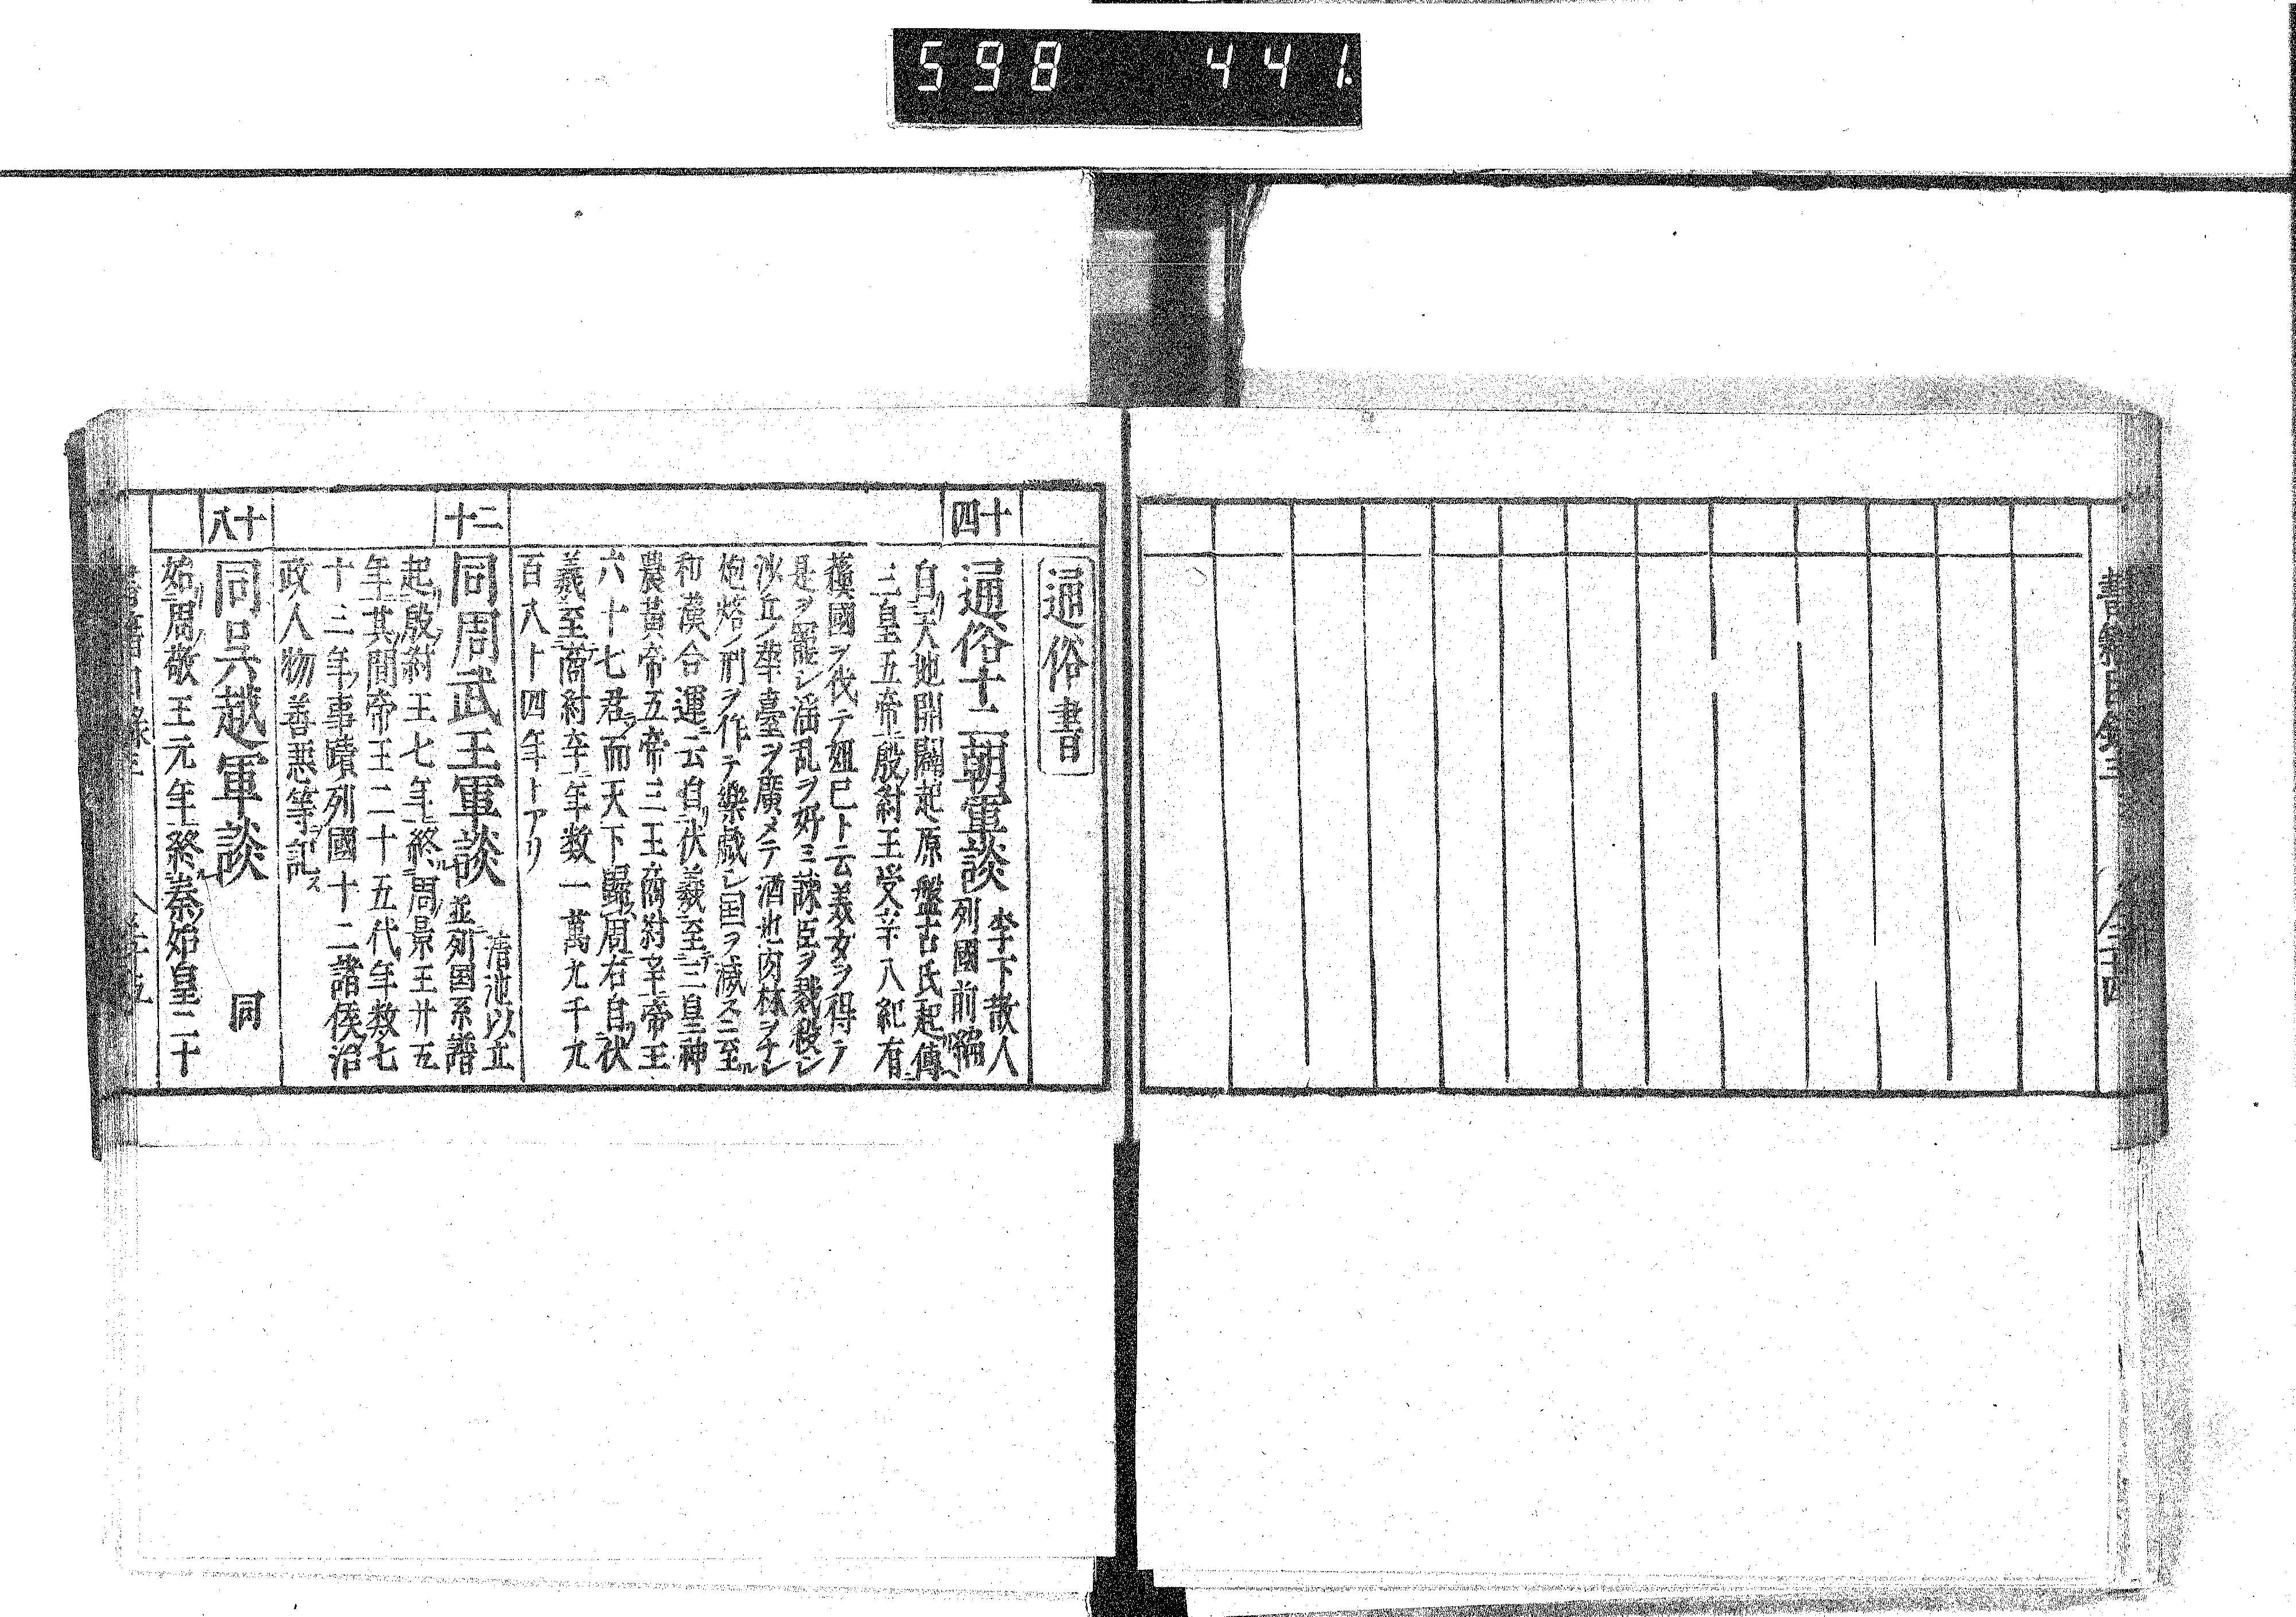 598 441.
書籍目録三
通俗書
十四
通俗十二朝軍談
李下散人
列國前編
自天地開闢起原盤古氏起傳
三皇五帝殷紂王受辛八紀有
蘓國ヲ伐テ妲已ト云美女ヲ得テ
是ヲ寵シ淫乱ヲ好ミ諫臣ヲ戮殺シ
沙丘ノ華臺ヲ廣メテ酒池肉林ヲナシ
炮烙ノ刑ヲ作テ樂戯シ国ヲ滅スニ至ル
和漢合運ニ云自伏羲至三皇神
農黃帝五帝三王商紂辛帝王
六十七君而天下歸周右自伏
羲至商紂辛年数一萬九千九
百八十四年トアリ
二十
同周武王軍談
清池以立
並列国系譜
起殷紂王七年終周景王廿五
年其間帝王二十五代年数七
十三年事蹟列國十二諸侯治
政人物善悪等記ス
十八
同呉越軍談 同
始周敬王元年終秦始皇二十